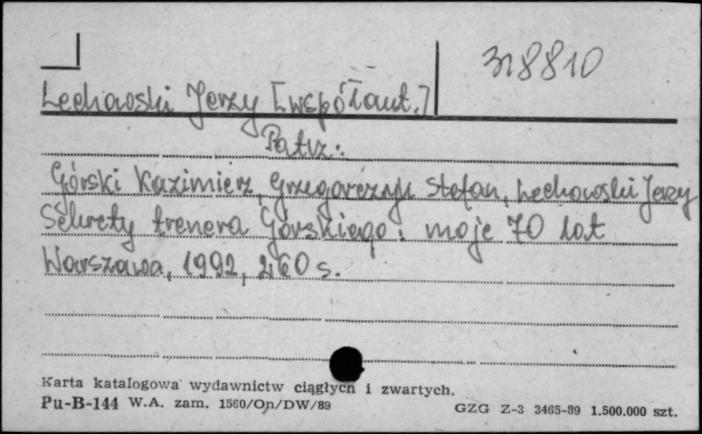 318810
Lechowski Jerzy [współaut.]
Patrz:
Górski Kazimierz, Grzegorczyk Stefan, Lechowski Jerzy
Sekrety trenera Górskiego: moje 70 lat
Warszawa, 1992, 260 s.
Karta katalogowa wydawnictw ciągłych i zwartych.
Pu-B-144 W.A. zam. 1560/On/DW/89
GZG Z-3 3465-89 1.500.000 szt.